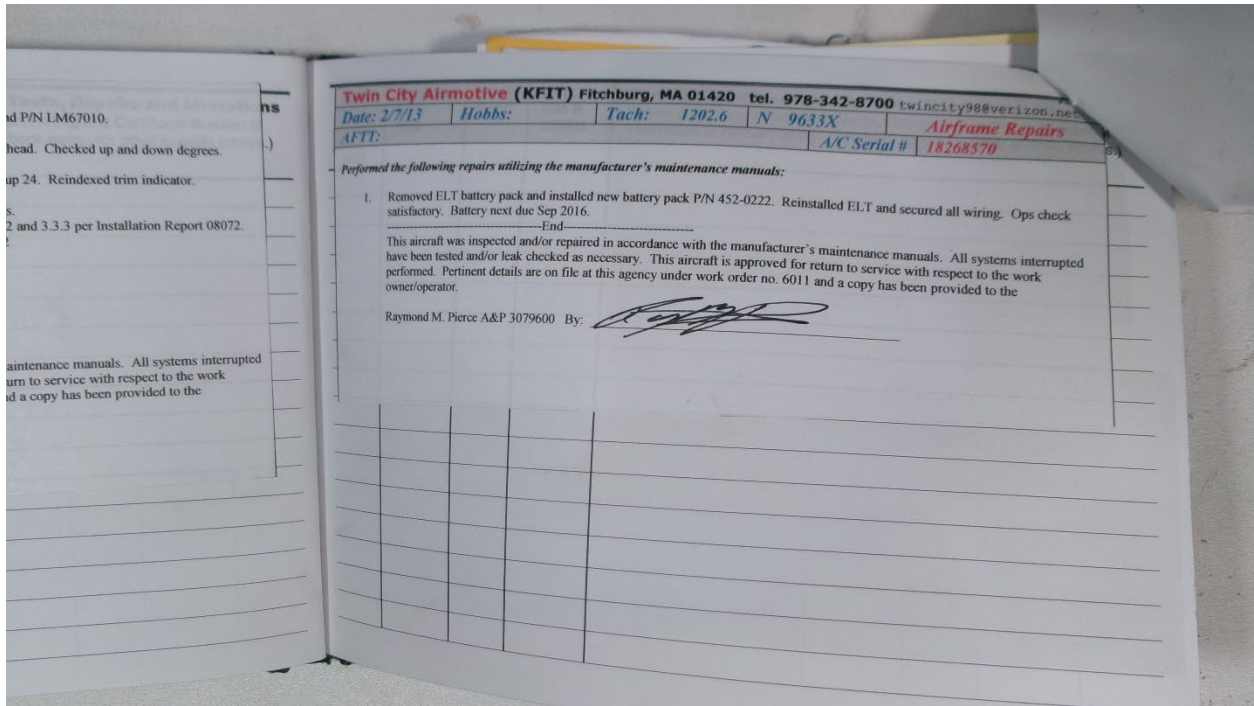 ns
d P/N LM67010.
.)
head. Checked up and down degrees.
up 24. Reindexed trim indicator.
s.
2 and 3.3.3 per Installation Report 08072.
aintenance manuals. All systems interrupted
urn to service with respect to the work
d a copy has been provided to the
Twin City Airmotive (KFIT) Fitchburg, MA 01420 tel. 978-342-8700 twincity98@verizon.net
Date: 2/7/13 Hobbs: Tach: 1202.6 N 9633X Airframe Repairs
AFTT: A/C Serial # 18268570
s.)
Performed the following repairs utilizing the manufacturer's maintenance manuals:
1. Removed ELT battery pack and installed new battery pack P/N 452-0222. Reinstalled ELT and secured all wiring. Ops check
satisfactory. Battery next due Sep 2016.
-----------------------------------End-----------------------------
This aircraft was inspected and/or repaired in accordance with the manufacturer's maintenance manuals. All systems interrupted
have been tested and/or leak checked as necessary. This aircraft is approved for return to service with respect to the work
performed. Pertinent details are on file at this agency under work order no. 6011 and a copy has been provided to the
owner/operator.
Raymond M. Pierce A&P 3079600 By: